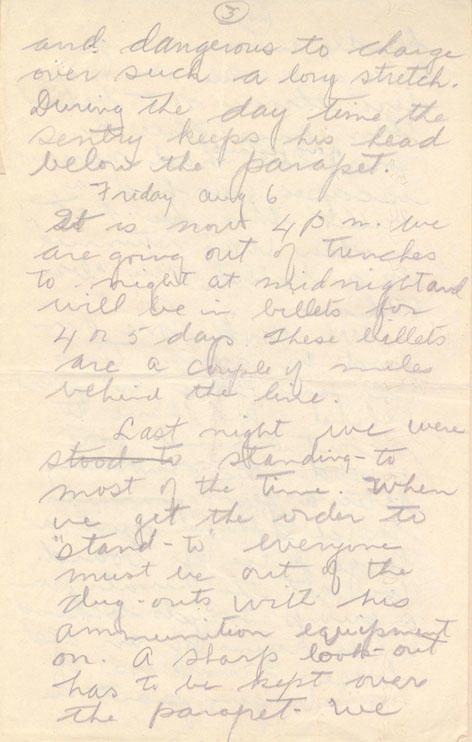 3
and dangerous to charge
over such a long stretch.
During the day time the
sentry keeps his head
below the parapet.
Friday Aug. 6
It is now 4 p m. We
are going out of trenches
to-night at midnight and
will be in billets for
4 or 5 days. These billets
are a couple of miles
behind the line.
Last night we were
stood-to standing-to
most of the time. When
we get the order to
"stand-to" everyone
must be out of the
dug-outs with his
ammunition equipment
on. A sharp look-out
has to be kept over
the parapet. We